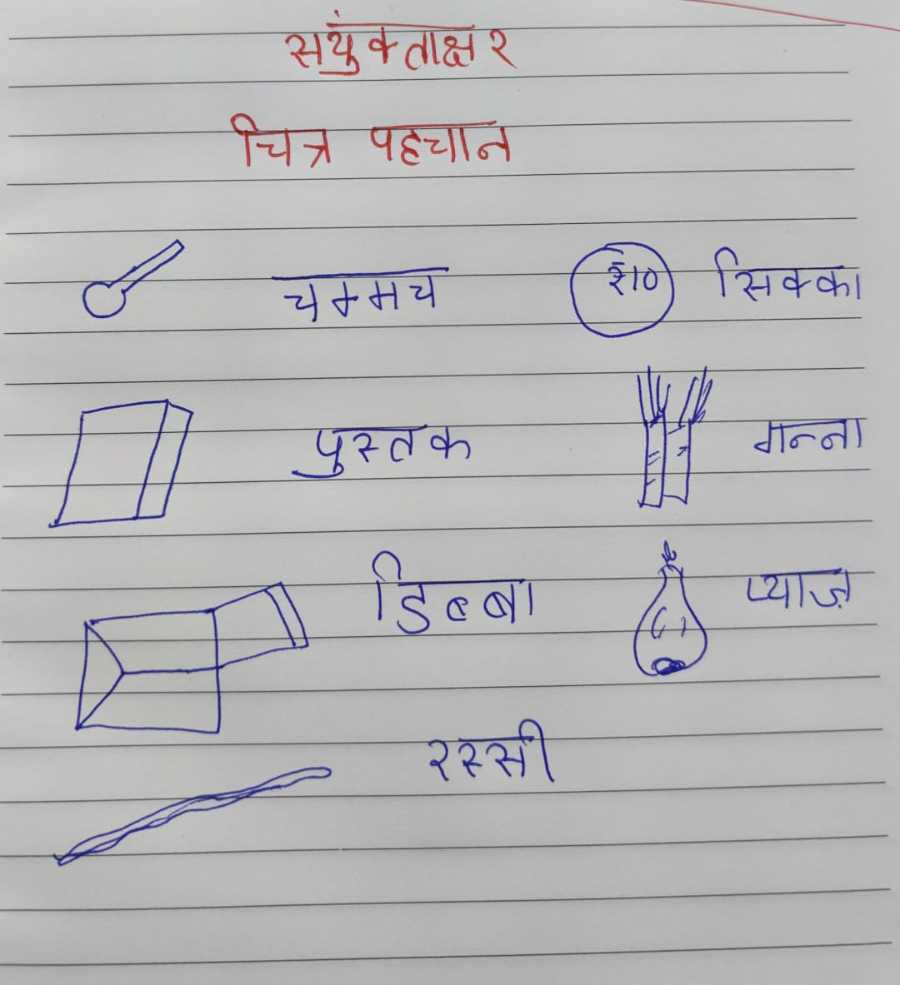 सयुंक्ताक्षर
चित्र पहचान
चम्मच ₹10 सिक्का
पुस्तक गन्ना
डिब्बा प्याज़
रस्सी